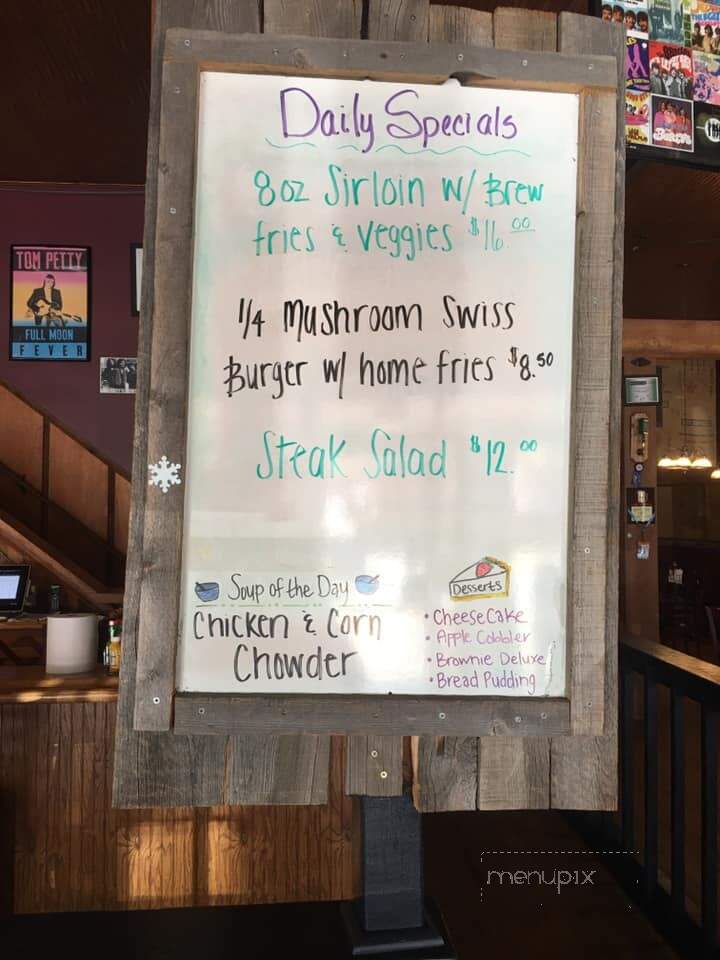 Daily Specials
8oz Sirloin w/ Brew
fries & Veggies $16.00
1/4 Mushroom Swiss
Burger w/ home fries $8.50
Steak Salad $12.00
Soup of the Day
Chicken & Corn
Chowder
Desserts
• CheeseCake
• Apple Cobbler
• Brownie Deluxe
• Bread Pudding
TOM PETTY
FULL MOON
FEVER
menupix